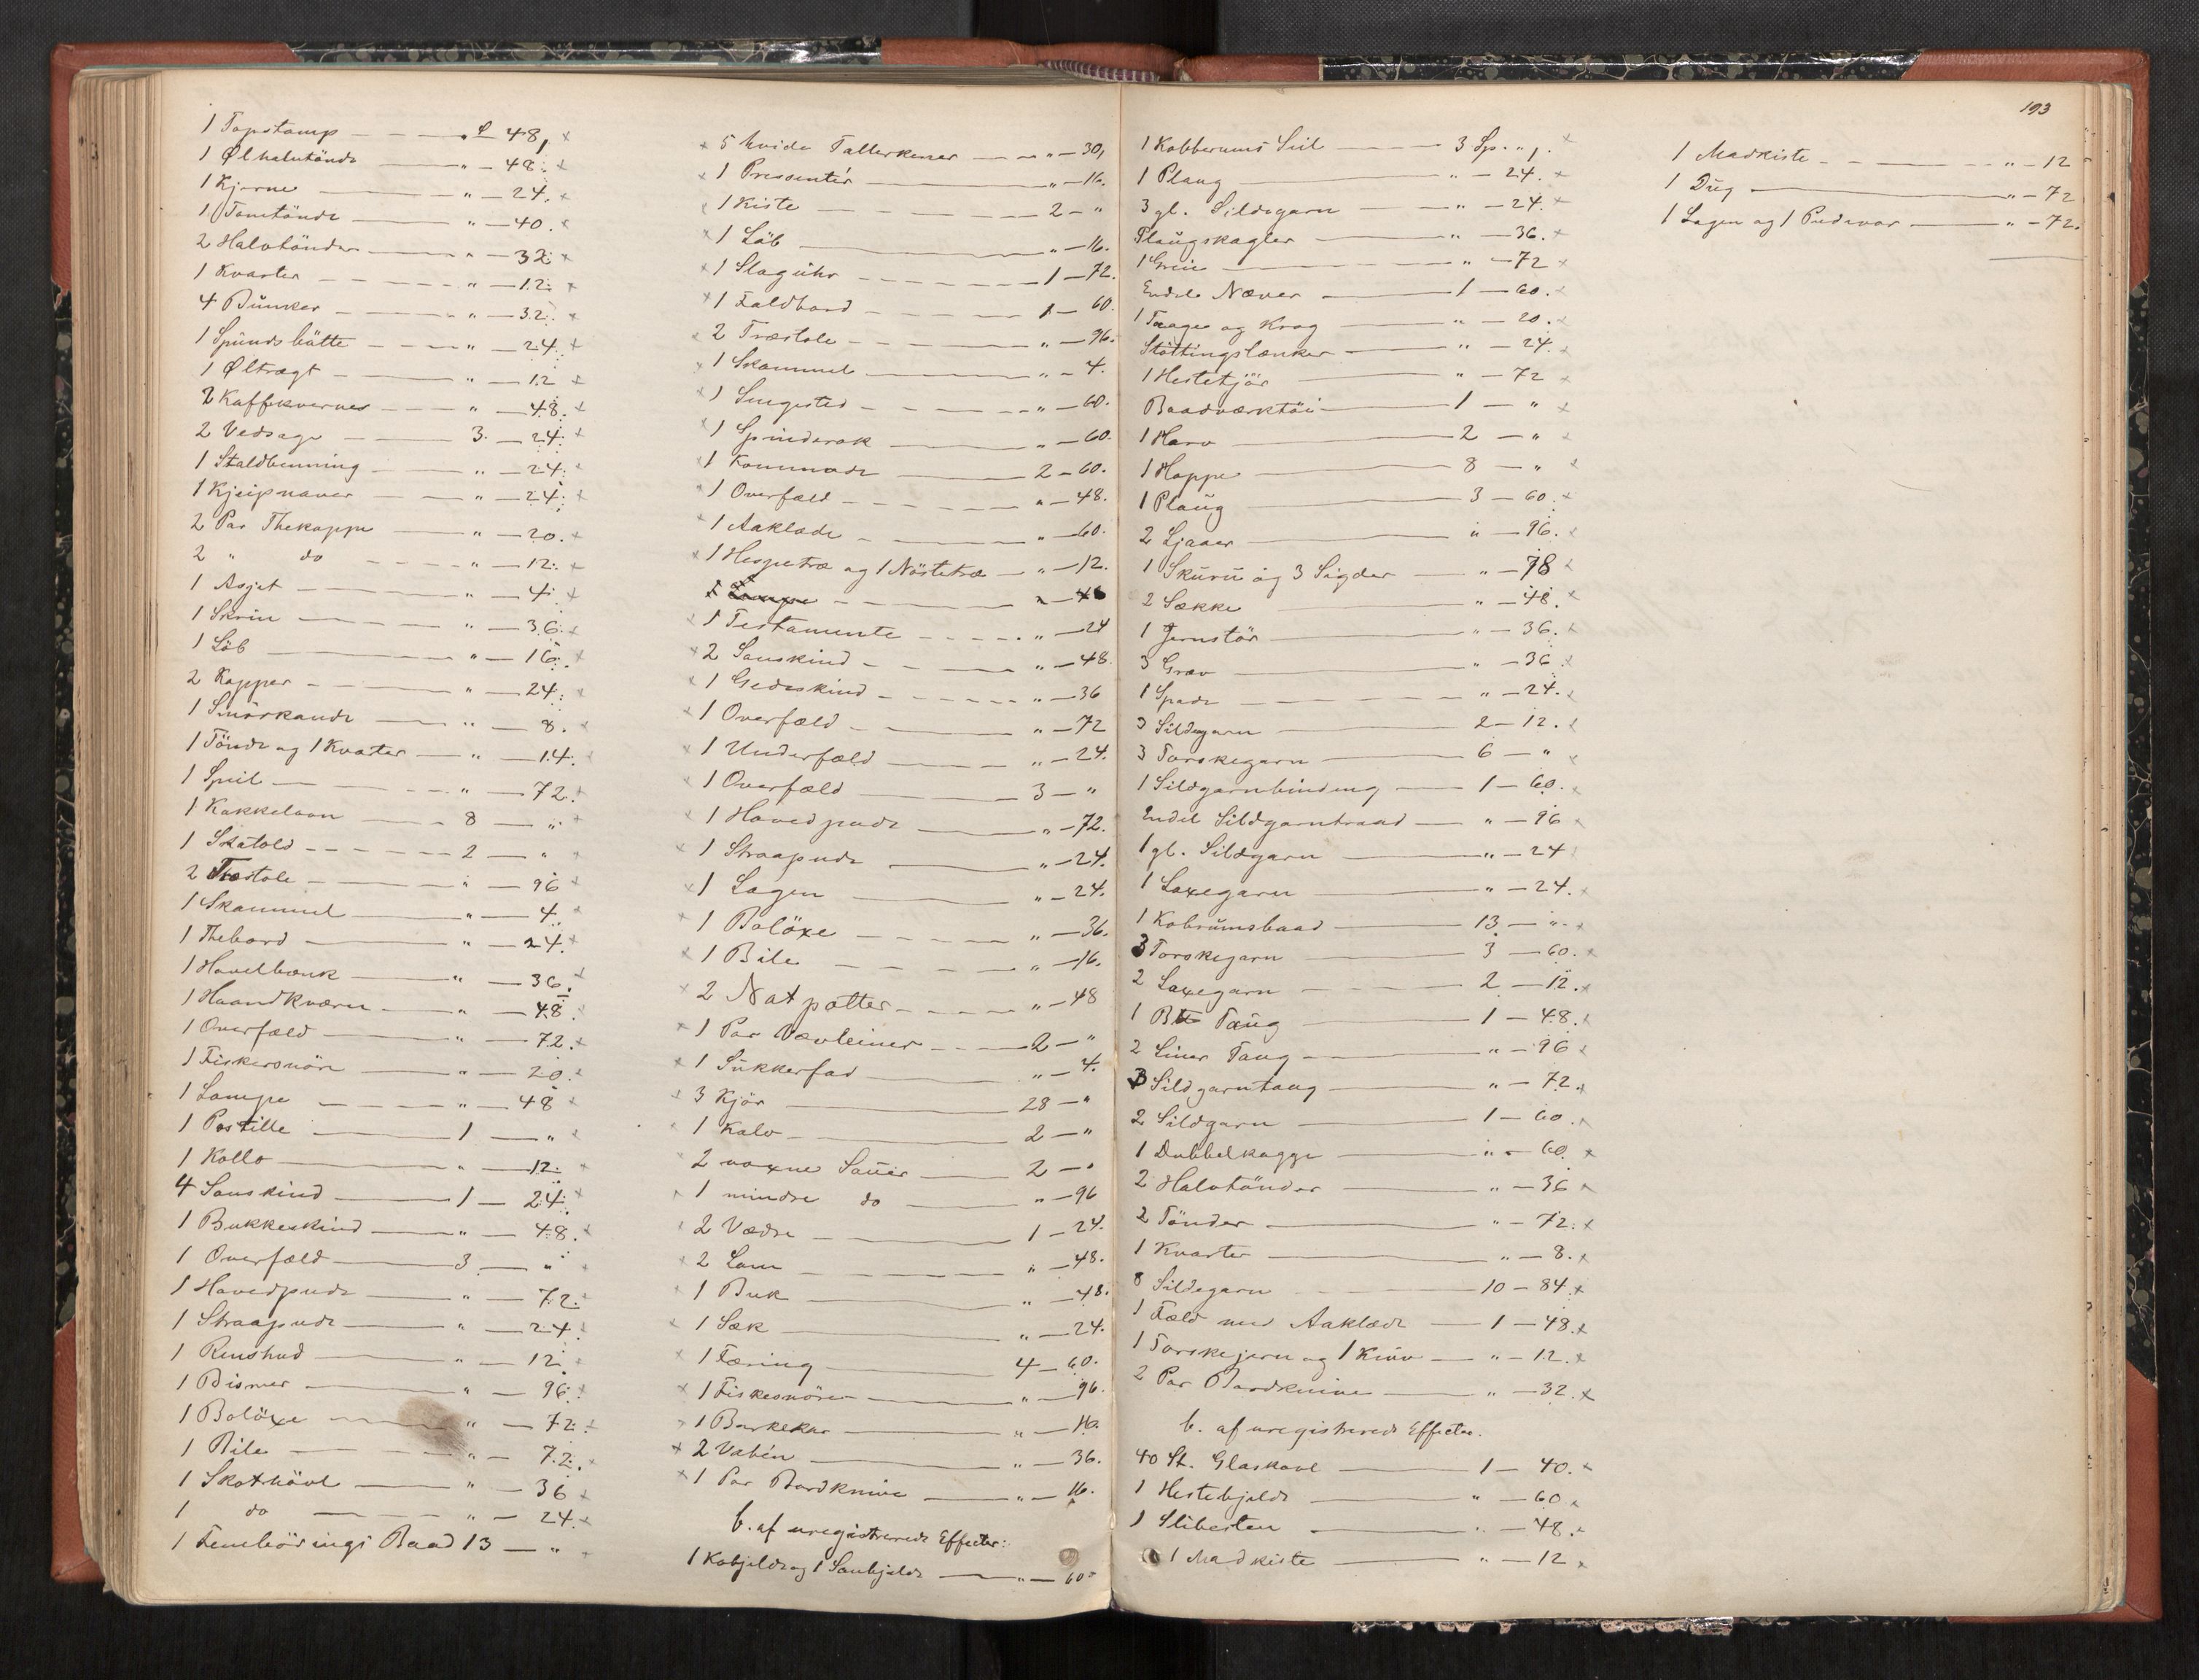 1 Tapstamp — „ ß 48, ×
1 Ølhalvtönde — „ — 48. ×
1 Kjerne — „ — 24. ×
1 Tomtönde — „ — 40. ×
2 Halvtönder — „ — 32. ×
1 Kvarter — „ — 12. ×
4 Bunker — „ — 32. ×
1 Spundsbütte — „ — 24. ×
1 Øltragt — „ — 12 ×
2 Kaffekverner — „ — 48. ×
2 Vedsage — 3. — 24. ×
1 Staldbenning — „ — 24. ×
1 Kjeipnaver — „ — 24. ×
2 Par Thekoppe — „ — 20. ×
2 „ do — „ — 12. ×
1 Asjet — „ — 4. ×
1 Skrin — „ — 36. ×
1 Löb — „ — 16. ×
2 Kopper — „ — 24. ×
1 Smörkande — „ — 8. ×
1 Tönde og 1 Kvarter — „ — 14. ×
1 Speil — „ — 72. ×
1 Kakkelovn — 8 — „ ×
1 Skatold — 2 — „ ×
2 Træstole — „ — 96 ×
1 Skammel — „ — 4. ×
1 Thebord — „ — 24. ×
1 Høvelbænk — „ — 36. ×
1 Haandkværn — „ — 48. ×
1 Overfæld — „ — 72. ×
1 Fiskersnöre — „ — 20. ×
1 Lampe — „ — 48 ×
1 Postille — 1 — „ ×
1 Kollo — „ — 12. ×
4 Sauskind — 1 — 24. ×
1 Bukkeskind — „ — 48. ×
1 Overfæld — 3 — „ ×
1 Hovedpude — „ — 72. ×
1 Straapude — „ — 24. ×
1 Renshud — „ — 12. ×
1 Bismer — „ — 96. ×
1 Bolöxe — „ — 72. ×
1 Bile — „ — 72. ×
1 Skothövl — „ — 36 ×
1 do — „ — 24. ×
1 Femböringsbaad 13 — „ ×
× 5 hvide Tallerkener — „ — 30,
× 1 Presenter — „ — 16.
× 1 Kiste — 2 — „
× 1 Löb — „ — 16.
× 1 Slaguhr — 1 — 72.
× 1 Faldbord — 1 — 60
× 2 Træstole — „ — 96.
× 1 Skammel — „ — 4.
× 1 Sengested — „ — 60.
× 1 Spinderok — „ — 60.
× 1 Kommode — 2 — 60.
× 1 Overfæld — „ — 48.
× 1 Aaklæde — „ — 60.
× 1 Hespetræ og 1 Nöstetræ — „ — 12.
1 Lampe — „ — 48
× 1 Testamente — „ — 24
× 2 Sauskind — „ — 48.
× 1 Gedeskind — „ — 36
× 1 Overfæld — „ — 72
× 1 Underfæld — „ — 24.
× 1 Overfæld — 3 — „
× 1 Hovedpude — „ — 72.
× 1 Straapude — „ — 24.
× 1 Lagen — „ — 24.
× 1 Bolöxe — „ — 36.
× 1 Bile — „ — 16.
× 2 Natpotter — „ — 48
× 1 Par Vævleiner — 2 — „
× 1 Sukkerfad — „ — 4.
× 3 Kjör — 28 — „
× 1 Kalv — 2 — „
× 2 voxne Sauer — 2 — „
× 1 mindre do — „ — 96
× 2 Vædre — 1 — 24.
× 2 Lam — „ — 48.
× 1 Buk — „ — 48.
× 1 Sæk — „ — 24.
× 1 Færing — 4 — 60.
× 1 Fiskesnöre — „ — 96.
× 1 Barkekar — „ — 16.
× 2 Vabein — „ — 36.
× 1 Par Bordknive — „ — 16.
b. af uregistrerede Effecter:
1 Kobjelde og 1 Saubjelde — „ — 60
193
1 Kobberums Seil — 3 Sp. „ ,. ×
1 Plaug — „ — 24. ×
3 gl. Sildegarn — „ — 24. ×
Plaugskagler — „ — 36. ×
1 Greie — „ — 72 ×
Endele Næver — 1 — 60. ×
1 Traage og Krog — „ — 20. ×
Stöttingslænker — „ — 24. ×
1 Hestetjör — „ — 72 ×
Baadværktöi — 1 — „ ×
1 Harv — 2 — „ ×
1 Hoppe — 8 — „ ×
1 Plaug — 3 — 60. ×
2 Ljaaer — „ — 96. ×
1 Skuru og 3 Sigder — „ — 78 ×
2 Sække — „ — 48. ×
1 Jernstör — „ — 36. ×
3 Grev — „ — 36. ×
1 Spade — „ — 24. ×
3 Sildegarn — 2 — 12. ×
3 Torskegarn — 6 — „ ×
1 Sildgarnbinding — 1 — 60. ×
Endel Sildgarntraad — „ — 96 ×
1 gl. Sildgarn — „ — 24 ×
1 Laxegarn — „ — 24. ×
1 Kobrumsbaad — 13 — „ ×
3 Torskegarn — 3 — 60. ×
2 Laxegarn — 2 — 12. ×
1 Bt Taug — 1 — 48. ×
2 Liner Taug — „ — 96 ×
3 Sildgarntaug — „ — 72. ×
2 Sildgarn — 1 — 60. ×
1 Dubbelkagge — „ — 60. ×
2 Halvtönder — „ — 36 ×
2 Tönder — „ — 72. ×
1 Kvarter — „ — 8. ×
8 Sildegarn — 10 — 84. ×
1 Fæld med Aaklæde — 1 — 48. ×
1 Torskejern og 1 Kniv — „ — 12. ×
2 Par Bordknive — „ — 32. ×
b. af uregistrerede Effecter.
40 St. Glaskavl — 1 — 40. ×
1 Hestebjelde — „ — 60 ×
1 Slibesten — „ — 48. ×
1 Madkiste — „ — 12 ×
1 Madkiste — „ — 12
1 Dug — „ — 72
1 Lagen og 1 Pudevar — „ — 72.